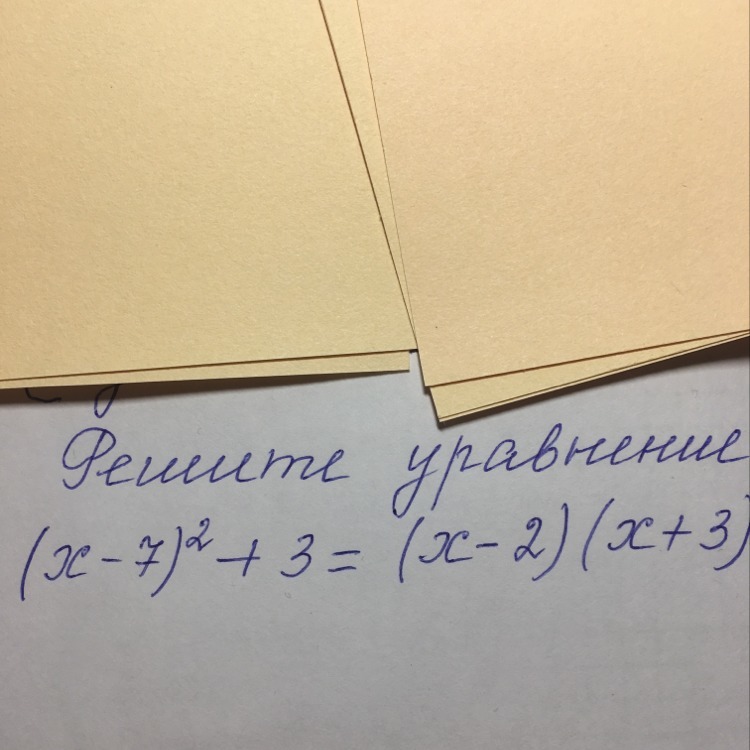 Решите уравнение
(x-7)²+3=(x-2)(x+3)